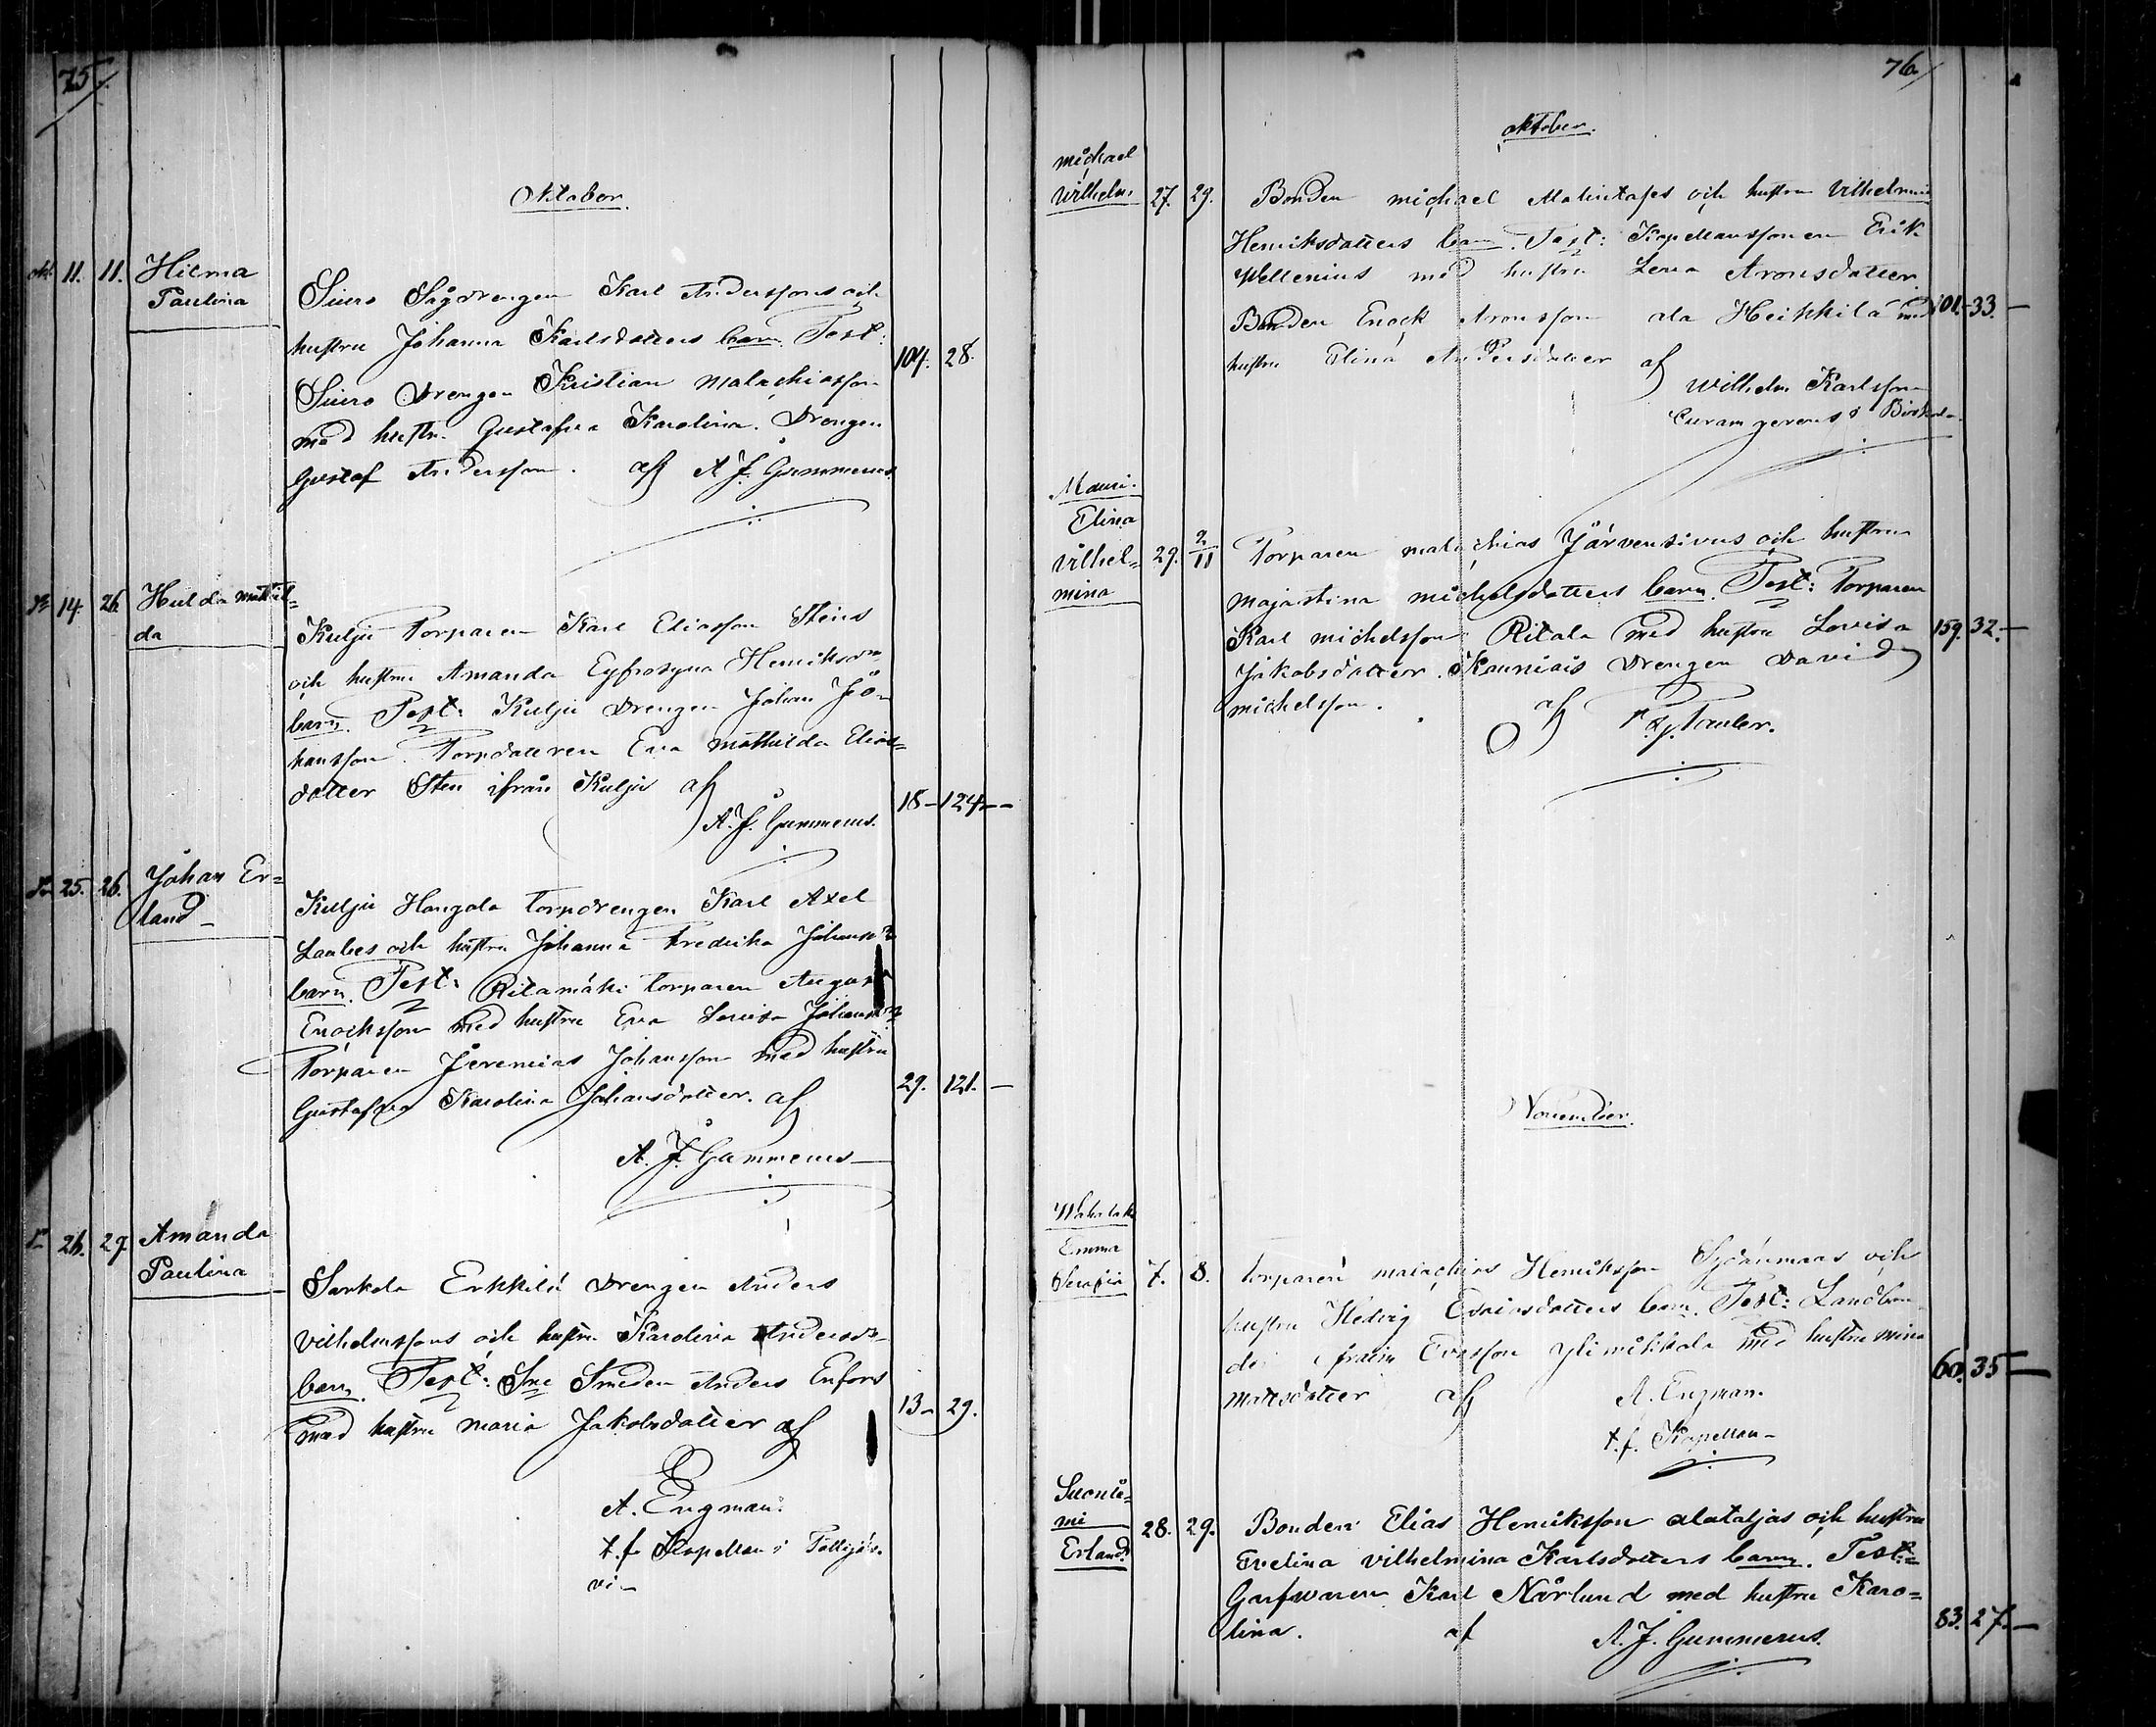 75
Oktober.
okt. 11. 11. Hilma
Paulina
Siuro Sågdrengen Karl Anderssons och
hustru Johanna Karlsdotters barn. Test:
Siuro Drengen Kristian Malachiasson
med hustru Gustafva Karolina. Drengen
Gustaf Andersson. af A. J. Gummerus.
104. 28.
14. 26. Hulda Mathil=
da
Kulju Torparen Karl Eliasson Stens
och hustru Amanda Eyfrosyna Henriksdr
barn. Test: Kulju Drengen Johan Jo=
hansson. Torpdottren Eva Mathilda Elias=
dotter Sten ifrån Kulju af
A. J. Gummerus.
18 - 124 -
25. 26. Johan Er=
land
Kulju Hangala torpdrengen Karl Axel
och hustru Johanna Fredrika Johansdr
barn. Test: Ritamäki torparen August
Enocksson med hustru Eva Lovisa Johansdr
Torparen Jeremias Johansson med hustru
Gustafva Karolina Johansdotter. af
A. J. Gummerus
29. 121. -
26. 29. Amanda
Paulina
Sarkola Erkkilä Drengen Anders
Vilhelmssons och hustru Karolina Andersdr
barn. Test: Smeden Anders Enfors
med hustru Maria Jakobsdotter af
A. Engman.
t.f. Kapellan i
13 - 29.
76
oktober.
Michael
Wilhelm 27. 29.
Bonden Michael och hustru Vilhelmina
Henriksdotters barn. Test: Kapellanssonen Erik
Wellenius med hustru Lena Aronsdotter.
Bonden Enock Aronsson ala Heikkilä med
hustru Elina Andersdotter af
Wilhelm Karlsson
Curam gerens i Birkala.
101. 33. -
Mauri.
Elina
Vilhel=
mina 29. 2/11
Torparen Malachias Järvensivus och hustru
Majastina Michelsdotters barn. Test: Torparen
Karl Michelsson Ritala med hustru Lovisa
Jakobsdotter. Kauniais Drengen David
Michelsson. af
159. 32. -
November.
Emma
Serafia 7. 8.
torparen Malachias Henriksson Sydänmaas och
hustru Hedvig Esaiasdotters barn. Test: Landbon=
den Efraim Ylimikkola med hustru Mina
Mattsdotter af A. Engman.
t.f. Kapellan
60. 35 -
Suonie=
mi
Erland. 28. 29.
Bonden Elias Henriksson alataljas och hustru
Evelina Vilhelmina Karlsdotters barn. Test:
Garfvaren Karl Norlund med hustru Karo=
lina. af A. J. Gummerus.
83. 27. -